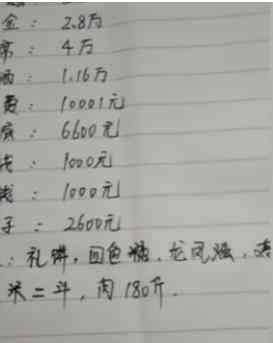 金：2.8万
席：4万
酒：1.16万
费：10001元
：6600元
：1000元
：1000元
子：2600元
：礼饼，四色糖，龙凤
米二斗，肉180斤.